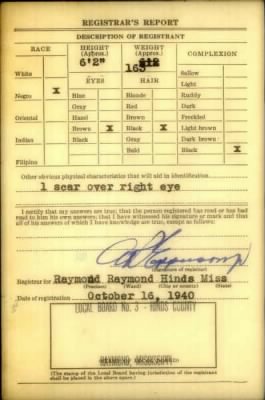 REGISTRAR'S REPORT
DESCRIPTION OF REGISTRANT
RACE HEIGHT (Approx.) WEIGHT (Approx.) COMPLEXION
6'2" 163
White Sallow
EYES HAIR Light
Negro X Blue Blonde Ruddy
Gray Red Dark
Oriental Hazel Brown Freckled
Brown X Black X Light brown
Indian Black Gray Dark brown
Bald Black X
Filipino
Other obvious physical characteristics that will aid in identification
1 scar over right eye
I certify that my answers are true; that the person registered has read or has had
read to him his own answers; that I have witnessed his signature or mark and that
all of his answers of which I have knowledge are true, except as follows:
(Signature of registrar)
Registrar for Raymond Raymond Hinds Miss
(Precinct) (Ward) (City or county) (State)
Date of registration October 16, 1940
LOCAL BOARD NO. 3 - HINDS COUNTY
RAYMOND MISSISSIPPI
(The stamp of the Local Board having jurisdiction of the registrant
shall be placed in the above space.)